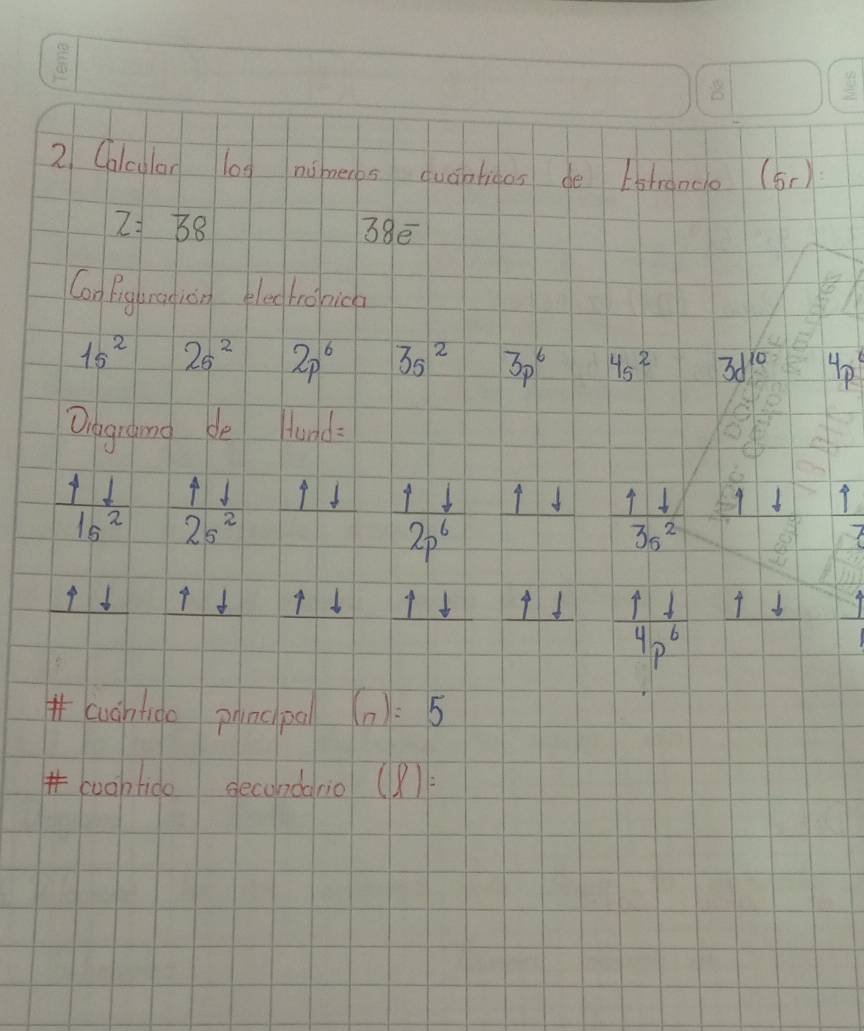 Tema
Dia
Mes
2. Calcular los números cuánticos de Estroncio (Sr):
Z= 38 38e-
Configuración electrónica
1s² 2s² 2p⁶ 3s² 3p⁶ 4s² 3d¹⁰ 4p⁶
Diagrama de Hund=
↑ ↓ ↑ ↓ ↑ ↓ ↑ ↓ ↑ ↓ ↑ ↓ ↑ ↓ ↑
1s² 2s² 2p⁶ 3s² 3
↑ ↓ ↑ ↓ ↑ ↓ ↑ ↓ ↑ ↓ ↑ ↓ ↑ ↓ ↑
4p⁶
# cuántico principal (n): 5
# cuántico secundario (l):